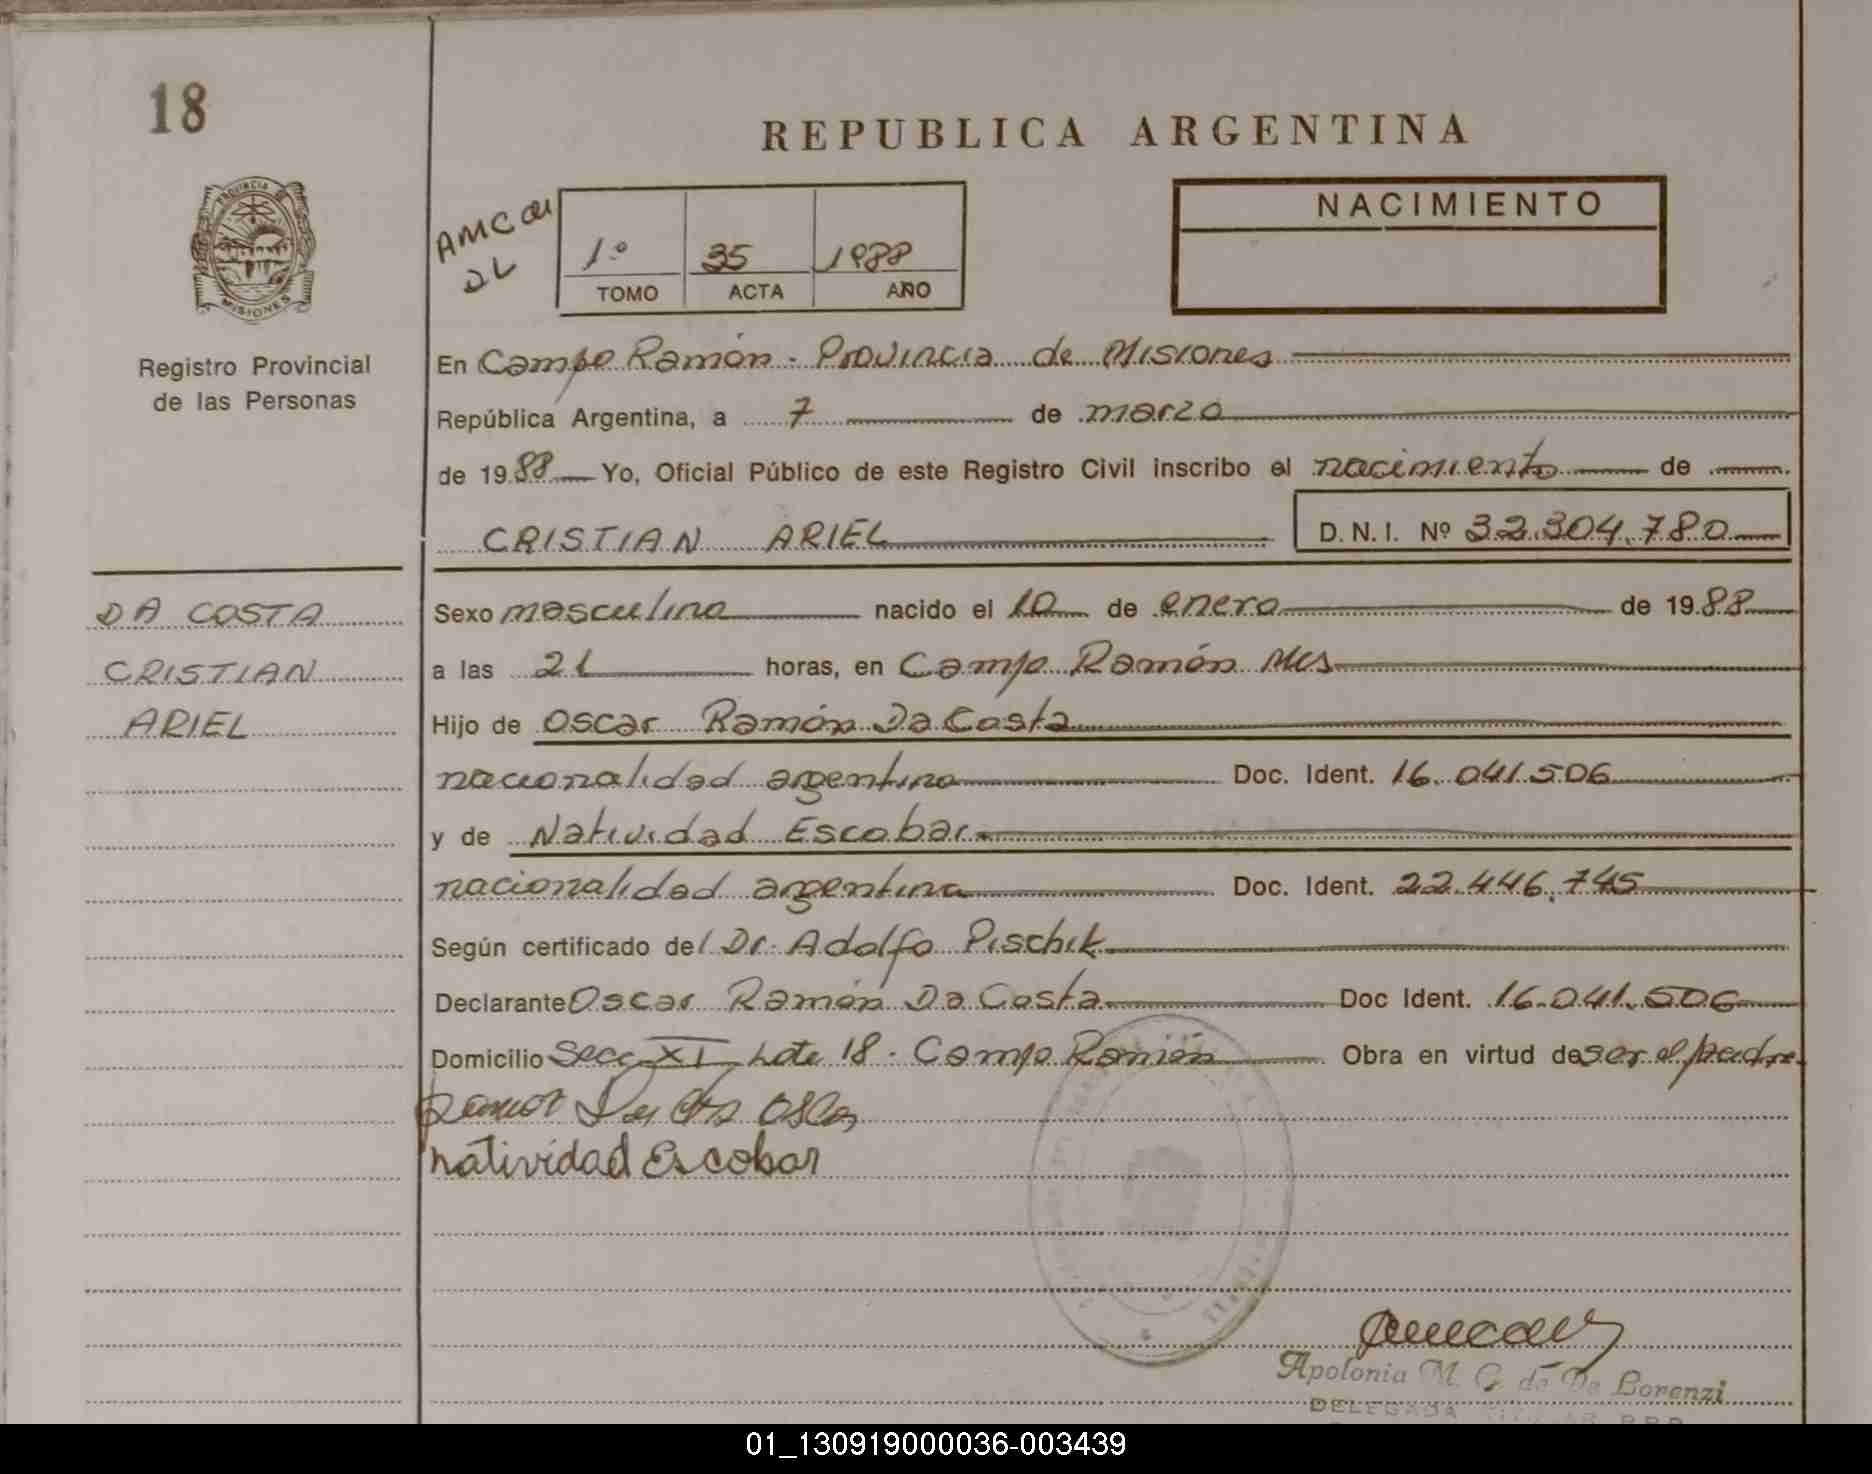 18
REPUBLICA ARGENTINA
PROVINCIA DE
MISIONES
Registro Provincial
de las Personas
1º 35 1988
TOMO ACTA AÑO
NACIMIENTO
En Campo Ramón - Provincia de Misiones
República Argentina, a 7 de marzo
de 1988 Yo, Oficial Público de este Registro Civil inscribo el nacimiento de
CRISTIAN ARIEL D.N.I. Nº 32.304.780
DA COSTA
CRISTIAN
ARIEL
Sexo masculino nacido el 10 de enero de 1988
a las 21 horas, en Campo Ramón Mis
Hijo de Oscar Ramón Da Costa
nacionalidad argentina Doc. Ident. 16.041.506
y de Natividad Escobar
nacionalidad argentina Doc. Ident. 22.446.745
Según certificado del Dr. Adolfo Pischik
Declarante Oscar Ramón Da Costa Doc Ident. 16.041.506
Domicilio Secc XI Lote 18 - Campo Ramón Obra en virtud de ser el padre
natividad Escobar
Apolonia M. C. de De Lorenzi
DELEGADA
01_130919000036-003439